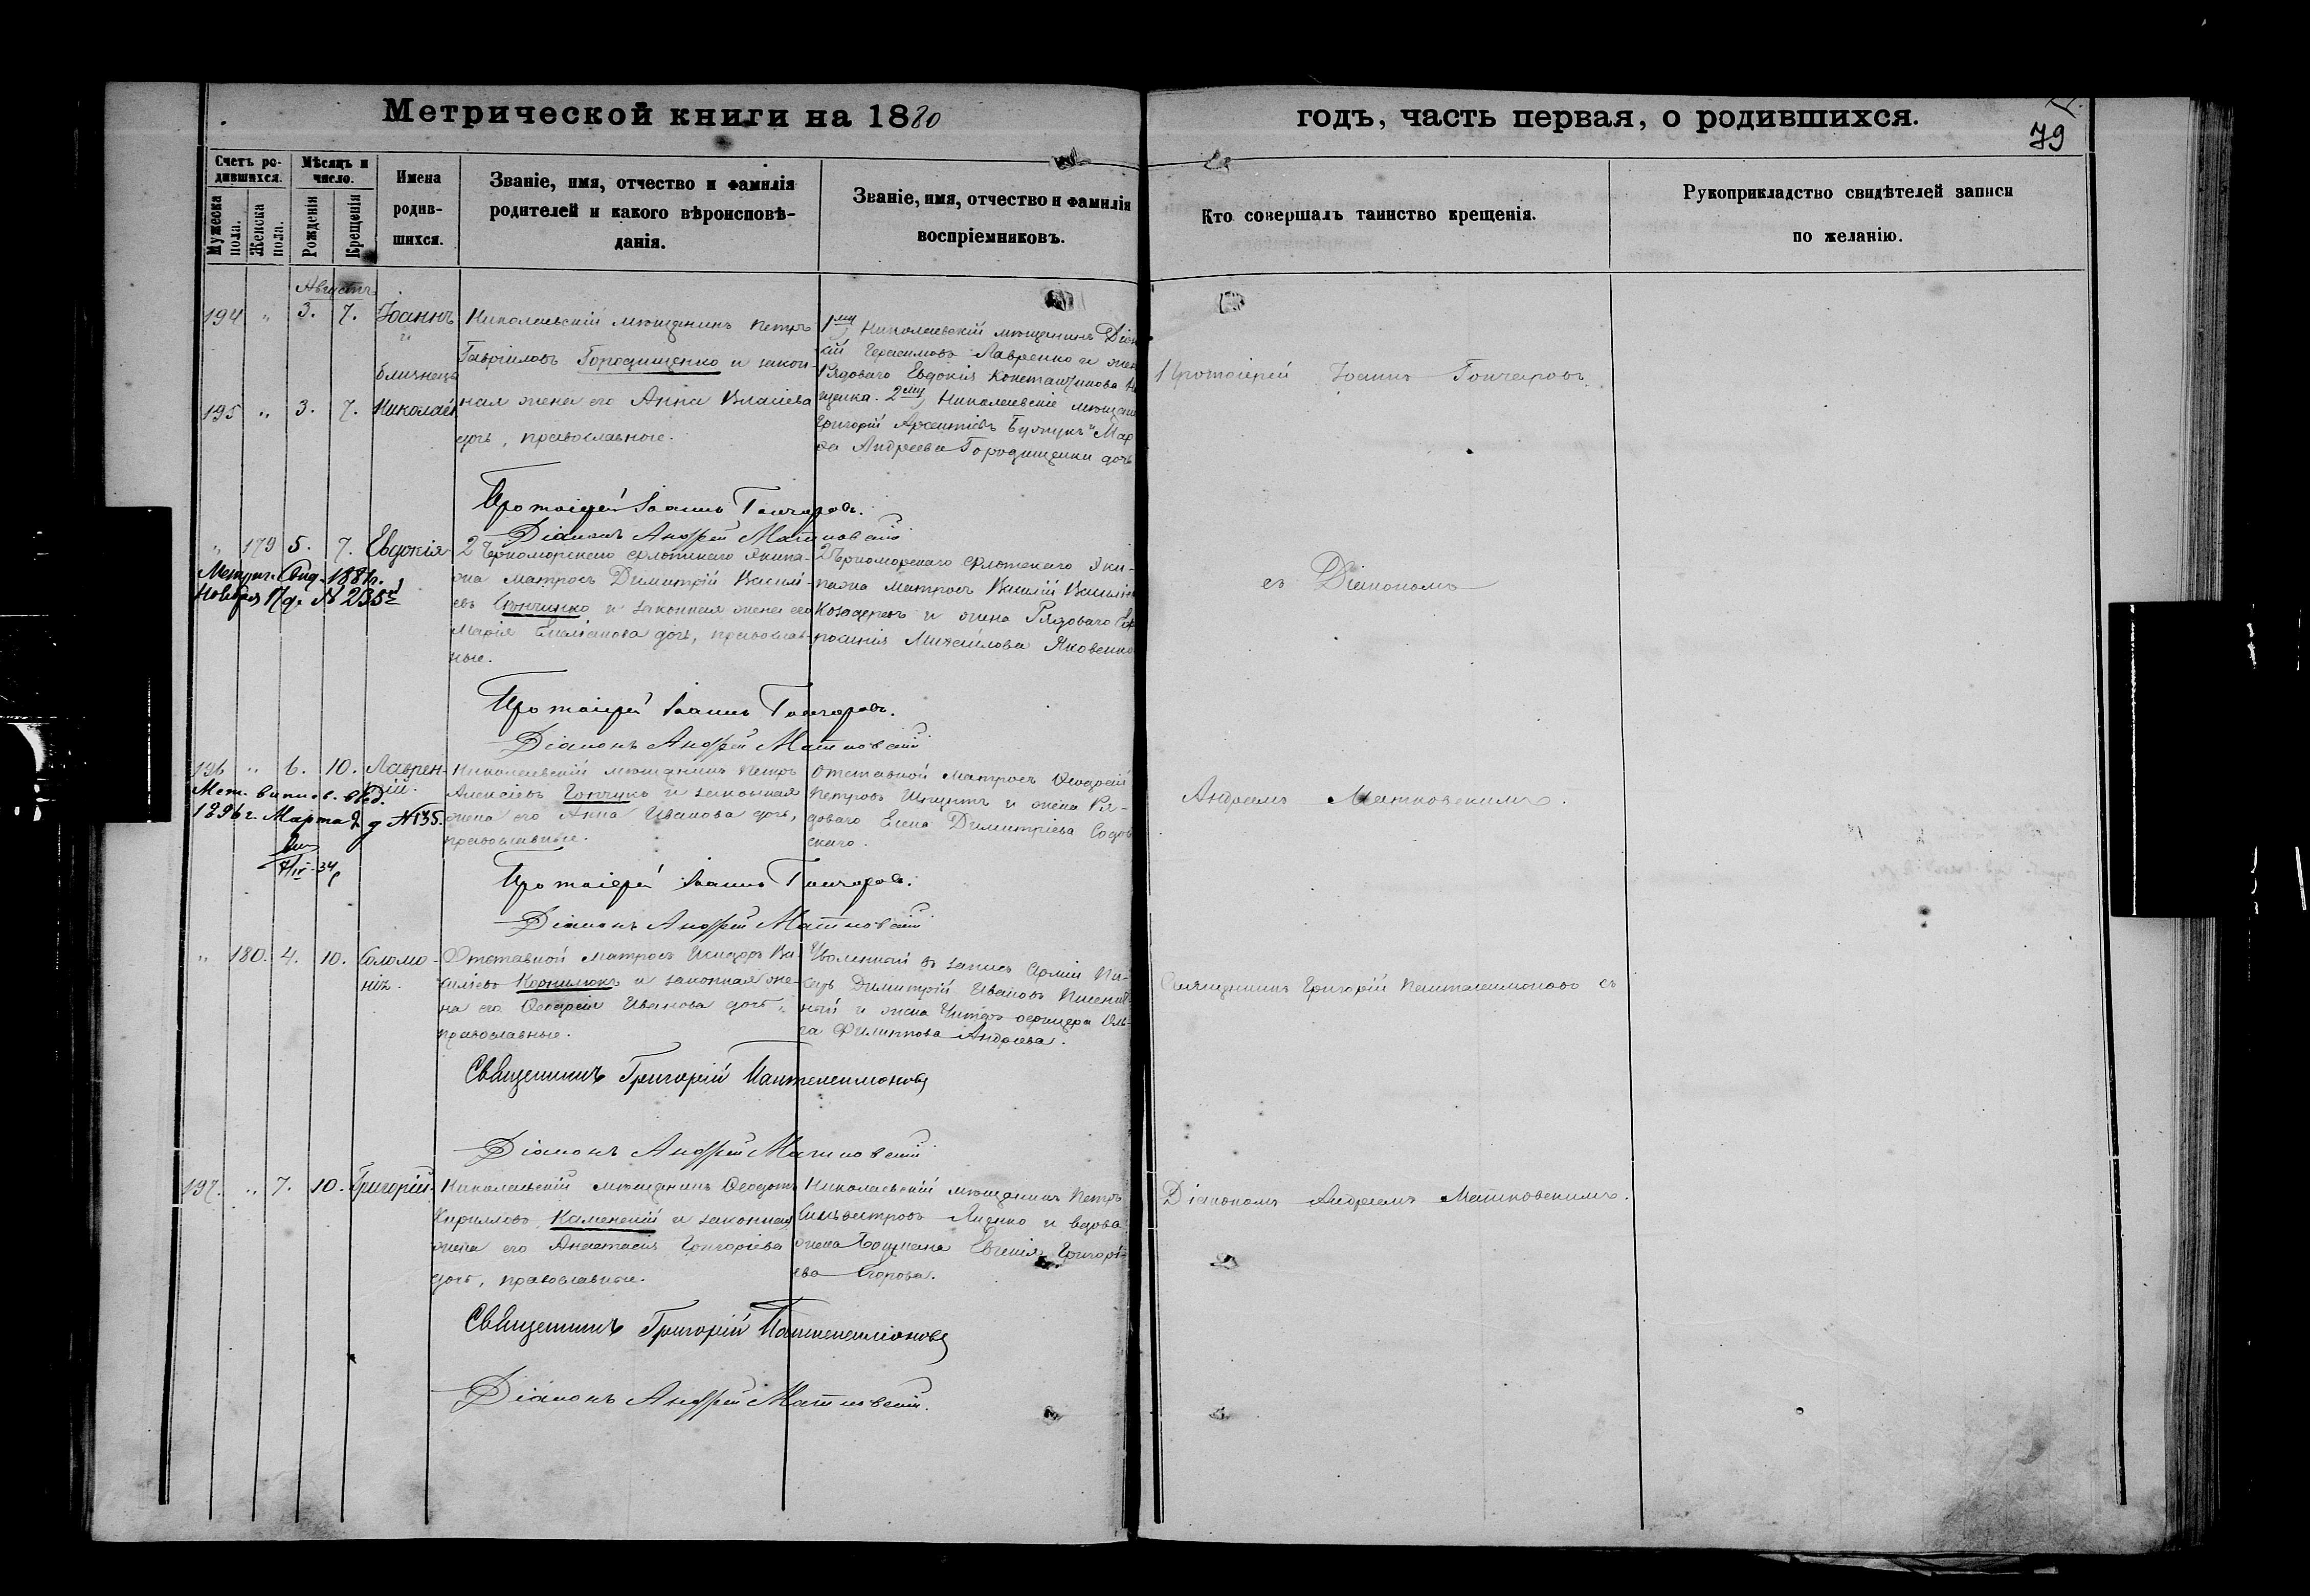 Метрической книги на 1880
годъ, часть первая, о родившихся.
79
Счетъ ро-
дившихся.
Мужеска пола.
Женска пола.
Мѣсяцъ и
число.
Рожденія
Крещенія
Имена
родив-
шихся.
Званіе, имя, отчество и фамилія
родителей и какого вѣроисповѣ-
данія.
Званіе, имя, отчество и фамилія
воспріемниковъ.
Кто совершалъ таинство крещенія.
Рукоприкладство свидѣтелей записи
по желанію.
Августъ
194 " 3. 7. Іоаннъ
и
близнецъ
195 " 3. 7. Николай
Николаевскій мѣщанинъ Петръ
Гавріиловъ Городищенко и закон-
ная жена его Анна Власіева
дочь, православные.
1й, Николаевскій мѣщанинъ
кій Герасимовъ Лавренко и
Рядоваго Евдокія Константинова
щенка. 2й, Николаевскіе
Григорій Арсентіевъ и Мар
ѳа Андреева Городищенки дочь
Протоіерей Іоаннъ Гончаровъ
Протоіерей Іоаннъ Гончаровъ.
Діаконъ Андрей Матковскій
" 179 5. 7. Евдокія
Метрич. Свид. 1887г.
Ноября 17 д. № 235
2 Черноморскаго флотскаго экипа-
жа матросъ Димитрій Василі-
евъ и законная жена его
Марія Емеліанова дочь, православ-
ные.
2 Черноморскаго флотскаго эки-
пажа матросъ Василій
и жена Рядоваго
росинія Михайлова Яковенко
съ Діакономъ
Протоіерей Іоаннъ Гончаровъ.
Діаконъ Андрей Матковскій
196 " 6. 10. Лаврен-
тій.
Мет. выпись. выд.
1896 г. Марта 2 д № 135.
Николаевскій мѣщанинъ Петръ
Алексіевъ Гончукъ и законная
жена его Анна Иванова дочь,
православные.
Отставной матросъ Ѳеодосій
Петровъ и жена Ря-
доваго Елена Димитріева
скаго.
Андреемъ Матковскимъ.
Протоіерей Іоаннъ Гончаровъ.
Діаконъ Андрей Матковскій
" 180. 4. 10. Соломо-
нія.
Отставной матросъ Исидоръ Ва-
силіевъ Корнилюкъ и законная же-
на его Ѳеодосія Иванова дочь,
православные.
Уволенный въ запасъ Арміи Пи-
сарь Димитрій Ивановъ
ный и жена Унтеръ офицера Оль-
га Филиппова Андреева.
Священникъ Григорій Пантелеимоновъ съ
Священникъ Григорій Пантелеимоновъ
Діаконъ Андрей Матковскій
197. " 7. 10. Григорій.
Николаевскій мѣщанинъ Ѳеодотъ
Кирилловъ Каменскій и законная
жена его Анастасія Григоріева
дочь, православные.
Николаевскій мѣщанинъ Петръ
Сильвестровъ и вдова
жена Боцмана Евгенія Григорі-
ева Егорова.
Діакономъ Андреемъ Матковскимъ.
Священникъ Григорій Пантелеимоновъ
Діаконъ Андрей Матковскій.